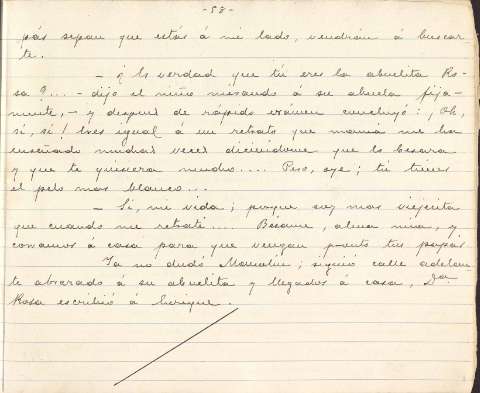 -58-
pás sepan que estás á mi lado, vendrán á buscar
te.
- ¿Es verdad que tú eres la abuelita Ro-
sa?... - dijo el niño mirando á su abuela, fija-
mente, - y después de rápido exámen concluyó: ¡Oh,
sí, sí! Eres igual á un retrato que mamá me ha
enseñado muchas veces diciéndome que lo besara
y que te quisiera mucho..... Pero, oye; tú tienes
el pelo mas blanco...
- Si, mi vida; porque soy mas viejecita
que cuando me retraté.... Bésame, alma mia, y
corramos á casa para que vengan pronto tus papás
Ya no dudó; siguió calle adelan-
te abrazado á su abuelita y llegados á casa, Dª
Rosa escribió á Enrique.